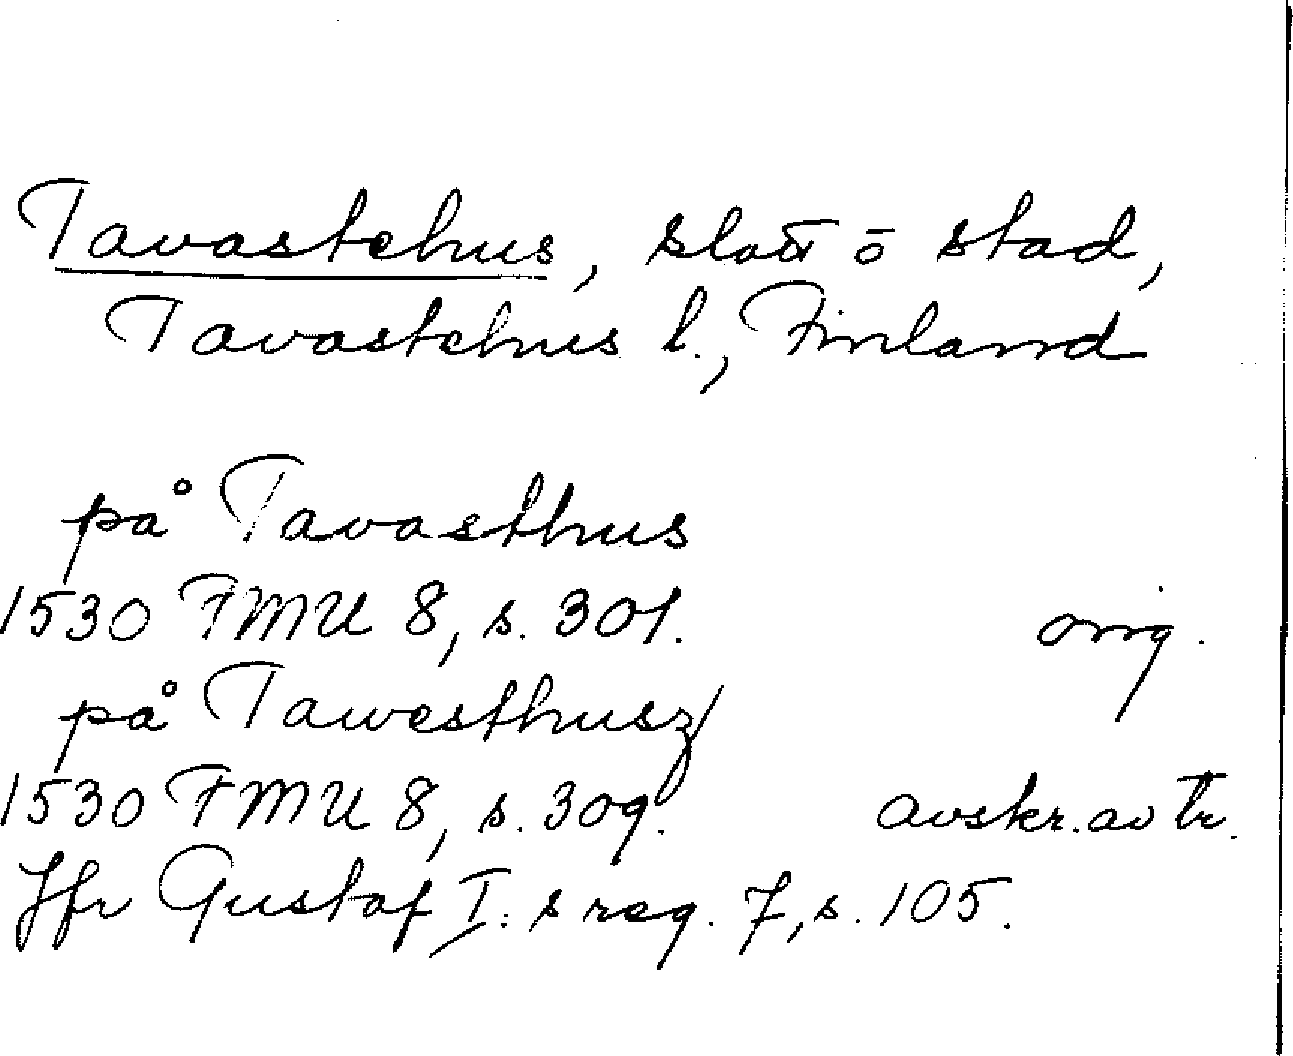 Tavastehus, slott o stad,
Tavastehus l., Finland
på Tavasthus
1530 FMU 8, s. 301. orig.
på Tawesthusz
1530 FMU 8, s. 309. avskr. av tr.
Jfr Gustaf I:s reg. 7, s. 105.